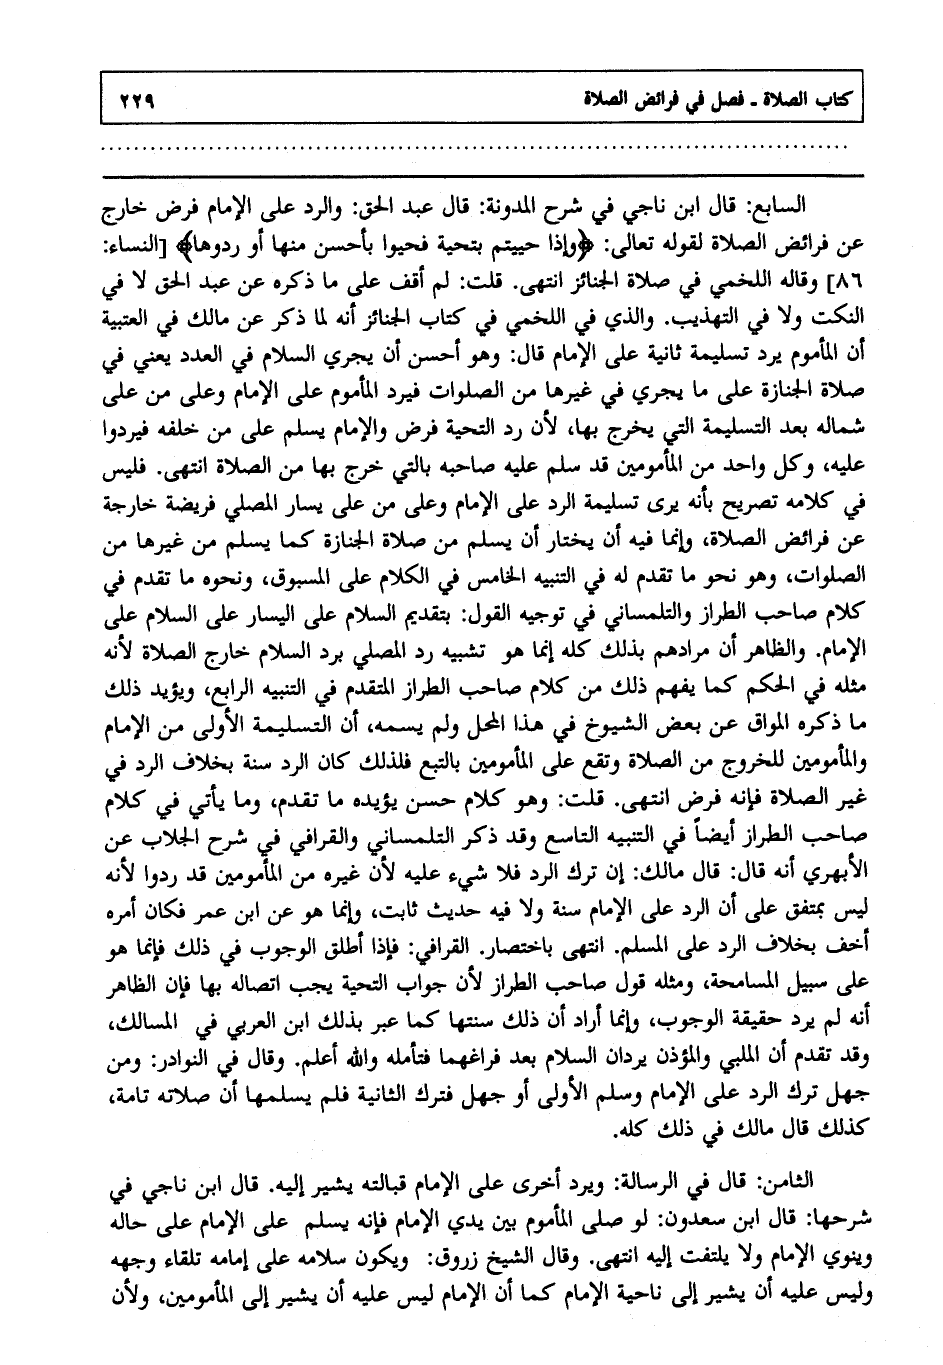 كتاب الصلاة ـ فصل في فرائض الصلاة ٢٢٩
السابع: قال ابن ناجي في شرح المدونة: قال عبد الحق: والرد على الإمام فرض خارج
عن فرائض الصلاة لقوله تعالى: ﴿وإذا حييتم بتحية فحيوا بأحسن منها أو ردوها﴾ [النساء:
٨٦] وقاله اللخمي في صلاة الجنائز انتهى. قلت: لم أقف على ما ذكره عن عبد الحق لا في
النكت ولا في التهذيب. والذي في اللخمي في كتاب الجنائز أنه لما ذكر عن مالك في العتبية
أن المأموم يرد تسليمة ثانية على الإمام قال: وهو أحسن أن يجري السلام في العدد يعني في
صلاة الجنازة على ما يجري في غيرها من الصلوات فيرد المأموم على الإمام وعلى من على
شماله بعد التسليمة التي يخرج بها، لأن رد التحية فرض والإمام يسلم على من خلفه فيردوا
عليه، وكل واحد من المأمومين قد سلم عليه صاحبه بالتي خرج بها من الصلاة انتهى. فليس
في كلامه تصريح بأنه يرى تسليمة الرد على الإمام وعلى من على يسار المصلي فريضة خارجة
عن فرائض الصلاة، وإنما فيه أن يختار أن يسلم من صلاة الجنازة كما يسلم من غيرها من
الصلوات، وهو نحو ما تقدم له في التنبيه الخامس في الكلام على المسبوق، ونحوه ما تقدم في
كلام صاحب الطراز والتلمساني في توجيه القول: بتقديم السلام على اليسار على السلام على
الإمام. والظاهر أن مرادهم بذلك كله إنما هو تشبيه رد المصلي برد السلام خارج الصلاة لأنه
مثله في الحكم كما يفهم ذلك من كلام صاحب الطراز المتقدم في التنبيه الرابع، ويؤيد ذلك
ما ذكره المواق عن بعض الشيوخ في هذا المحل ولم يسمه، أن التسليمة الأولى من الإمام
والمأمومين للخروج من الصلاة وتقع على المأمومين بالتبع فلذلك كان الرد سنة بخلاف الرد في
غير الصلاة فإنه فرض انتهى. قلت: وهو كلام حسن يؤيده ما تقدم، وما يأتي في كلام
صاحب الطراز أيضاً في التنبيه التاسع وقد ذكر التلمساني والقرافي في شرح الجلاب عن
الأبهري أنه قال: قال مالك: إن ترك الرد فلا شيء عليه لأن غيره من المأمومين قد ردوا لأنه
ليس بمتفق على أن الرد على الإمام سنة ولا فيه حديث ثابت، وإنما هو عن ابن عمر فكان أمره
أخف بخلاف الرد على المسلم. انتهى باختصار. القرافي: فإذا أطلق الوجوب في ذلك فإنما هو
على سبيل المسامحة، ومثله قول صاحب الطراز لأن جواب التحية يجب اتصاله بها فإن الظاهر
أنه لم يرد حقيقة الوجوب، وإنما أراد أن ذلك سنتها كما عبر بذلك ابن العربي في المسالك،
وقد تقدم أن الملبي والمؤذن يردان السلام بعد فراغهما فتأمله والله أعلم. وقال في النوادر: ومن
جهل ترك الرد على الإمام وسلم الأولى أو جهل فترك الثانية فلم يسلمها أن صلاته تامة،
كذلك قال مالك في ذلك كله.
الثامن: قال في الرسالة: ويرد أخرى على الإمام قبالته يشير إليه. قال ابن ناجي في
شرحها: قال ابن سعدون: لو صلى المأموم بين يدي الإمام فإنه يسلم على الإمام على حاله
وينوي الإمام ولا يلتفت إليه انتهى. وقال الشيخ زروق: ويكون سلامه على إمامه تلقاء وجهه
وليس عليه أن يشير إلى ناحية الإمام كما أن الإمام ليس عليه أن يشير إلى المأمومين، ولأن